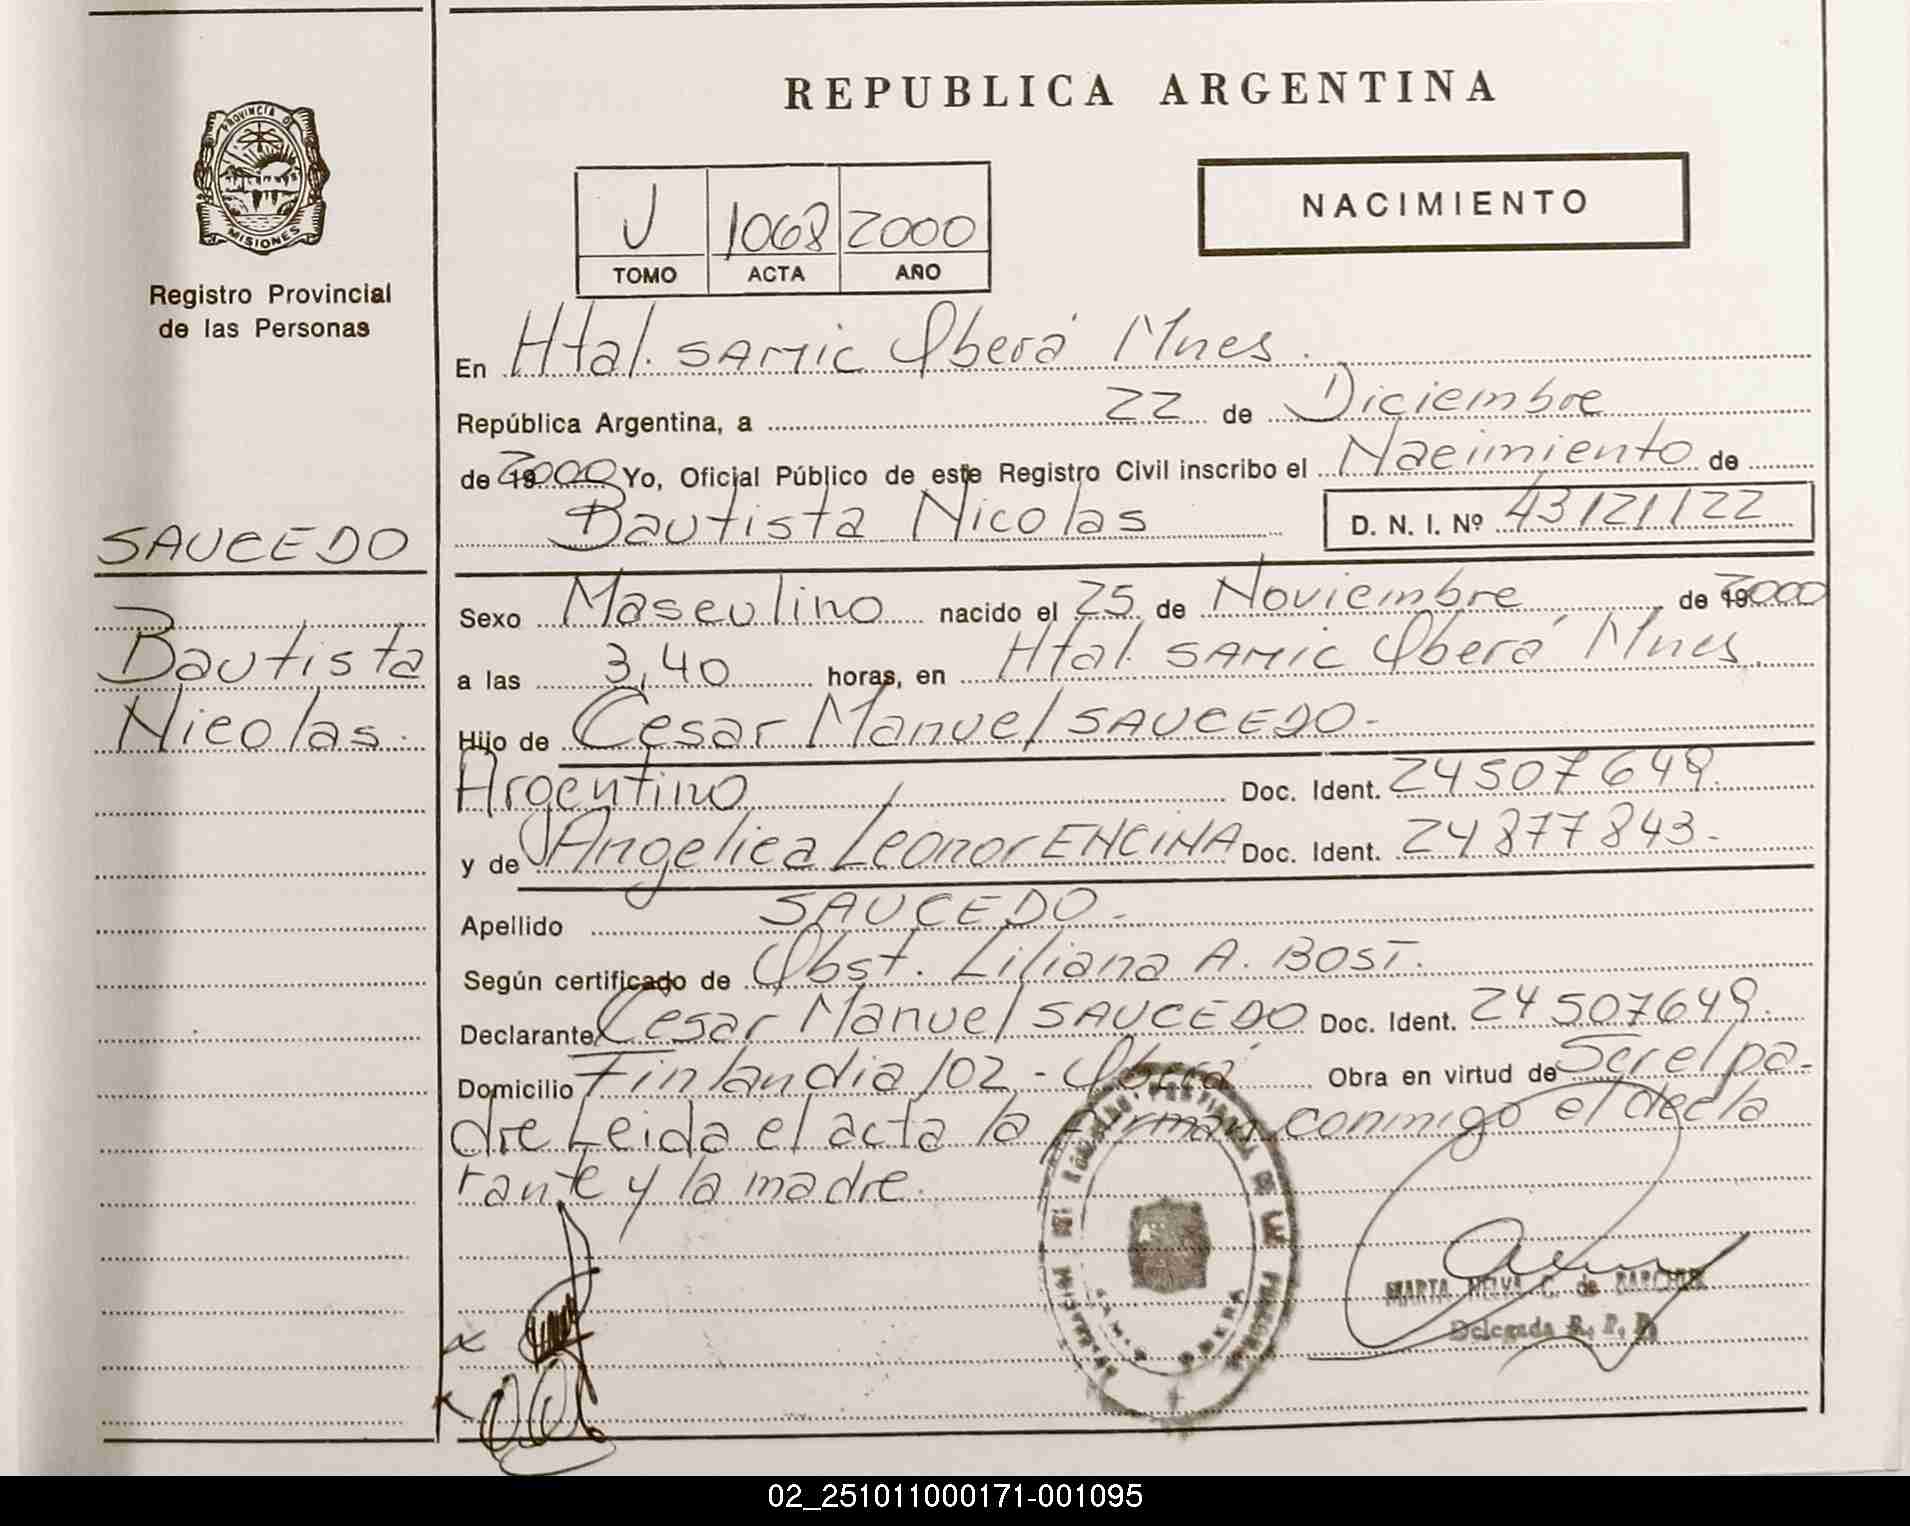 REPUBLICA ARGENTINA
PROVINCIA DE
MISIONES
Registro Provincial
de las Personas
J 1068 2000
TOMO ACTA AÑO
NACIMIENTO
En Htal. SAMIC Oberá Mnes.
República Argentina, a 22 de Diciembre
de 2000 Yo, Oficial Público de este Registro Civil inscribo el Nacimiento de
Bautista Nicolas D. N. I. Nº 43121122
SAUCEDO
Bautista
Nicolas.
Sexo Masculino nacido el 25 de Noviembre de 2000
a las 3,40 horas, en Htal. SAMIC Oberá Mnes.
Hijo de Cesar Manuel SAUCEDO-
Argentino Doc. Ident. 24507649.
y de Angelica Leonor ENCINA Doc. Ident. 24877843-
Apellido SAUCEDO-
Según certificado de Obst. Liliana A. BOST.
Declarante Cesar Manuel SAUCEDO Doc. Ident. 24507649.
Domicilio Finlandia 102 - Oberá Obra en virtud de Ser el pa-
dre Leida el acta la firman conmigo el decla
rante y la madre.
MARTA C. de
Delegada R. P. P.
02_251011000171-001095